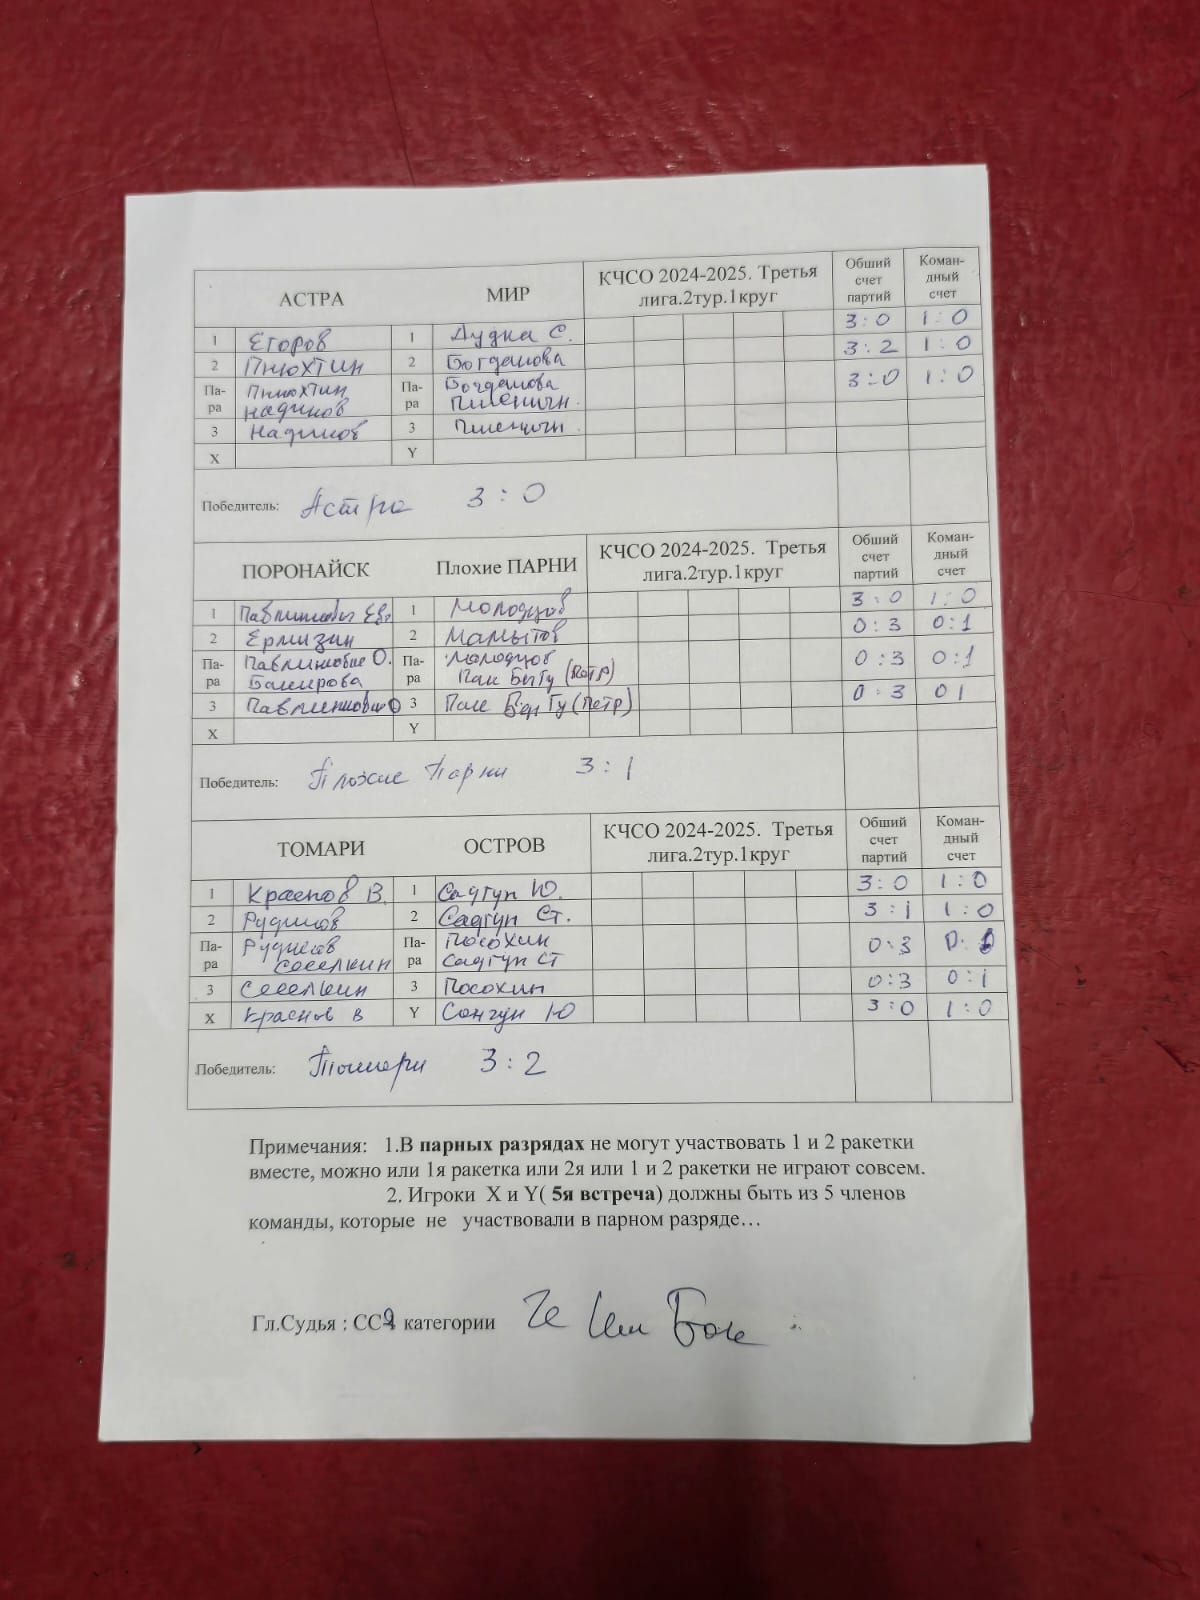 АСТРА МИР КЧСО 2024-2025. Третья лига.2тур.1круг Обший счет партий Коман-дный счет
1 Егоров 1 Дудка С. 3:0 1:0
2 Пнюхтин 2 Богданова 3:2 1:0
Па-ра Пнюхтин Надинов Па-ра Богданова Пшеничн. 3:0 1:0
3 Надинов 3 Пшеничн.
X Y
Победитель: Астра 3:0
ПОРОНАЙСК Плохие ПАРНИ КЧСО 2024-2025. Третья лига.2тур.1круг Обший счет партий Коман-дный счет
1 1 Молодцов 3:0 1:0
2 Ермизин 2 Мамытов 0:3 0:1
Па-ра О. Баширова Па-ра Молодцов Пак (Петр) 0:3 0:1
3 3 Пак Гу (Петр) 0:3 0 1
X Y
Победитель: Плохие Парни 3:1
ТОМАРИ ОСТРОВ КЧСО 2024-2025. Третья лига.2тур.1круг Обший счет партий Коман-дный счет
1 Краснов В. 1 Садгун Ю. 3:0 1:0
2 2 Садгун Ст. 3:1 1:0
Па-ра Па-ра Посохин Садгун Ст 0:3 0:1
3 3 Посохин 0:3 0:1
X Краснов В Y Ю 3:0 1:0
Победитель: Томари 3:2
Примечания: 1.В парных разрядах не могут участвовать 1 и 2 ракетки
вместе, можно или 1я ракетка или 2я или 1 и 2 ракетки не играют совсем.
2. Игроки X и Y( 5я встреча) должны быть из 5 членов
команды, которые не участвовали в парном разряде…
Гл.Судья : СС2 категории Че Ен Бок